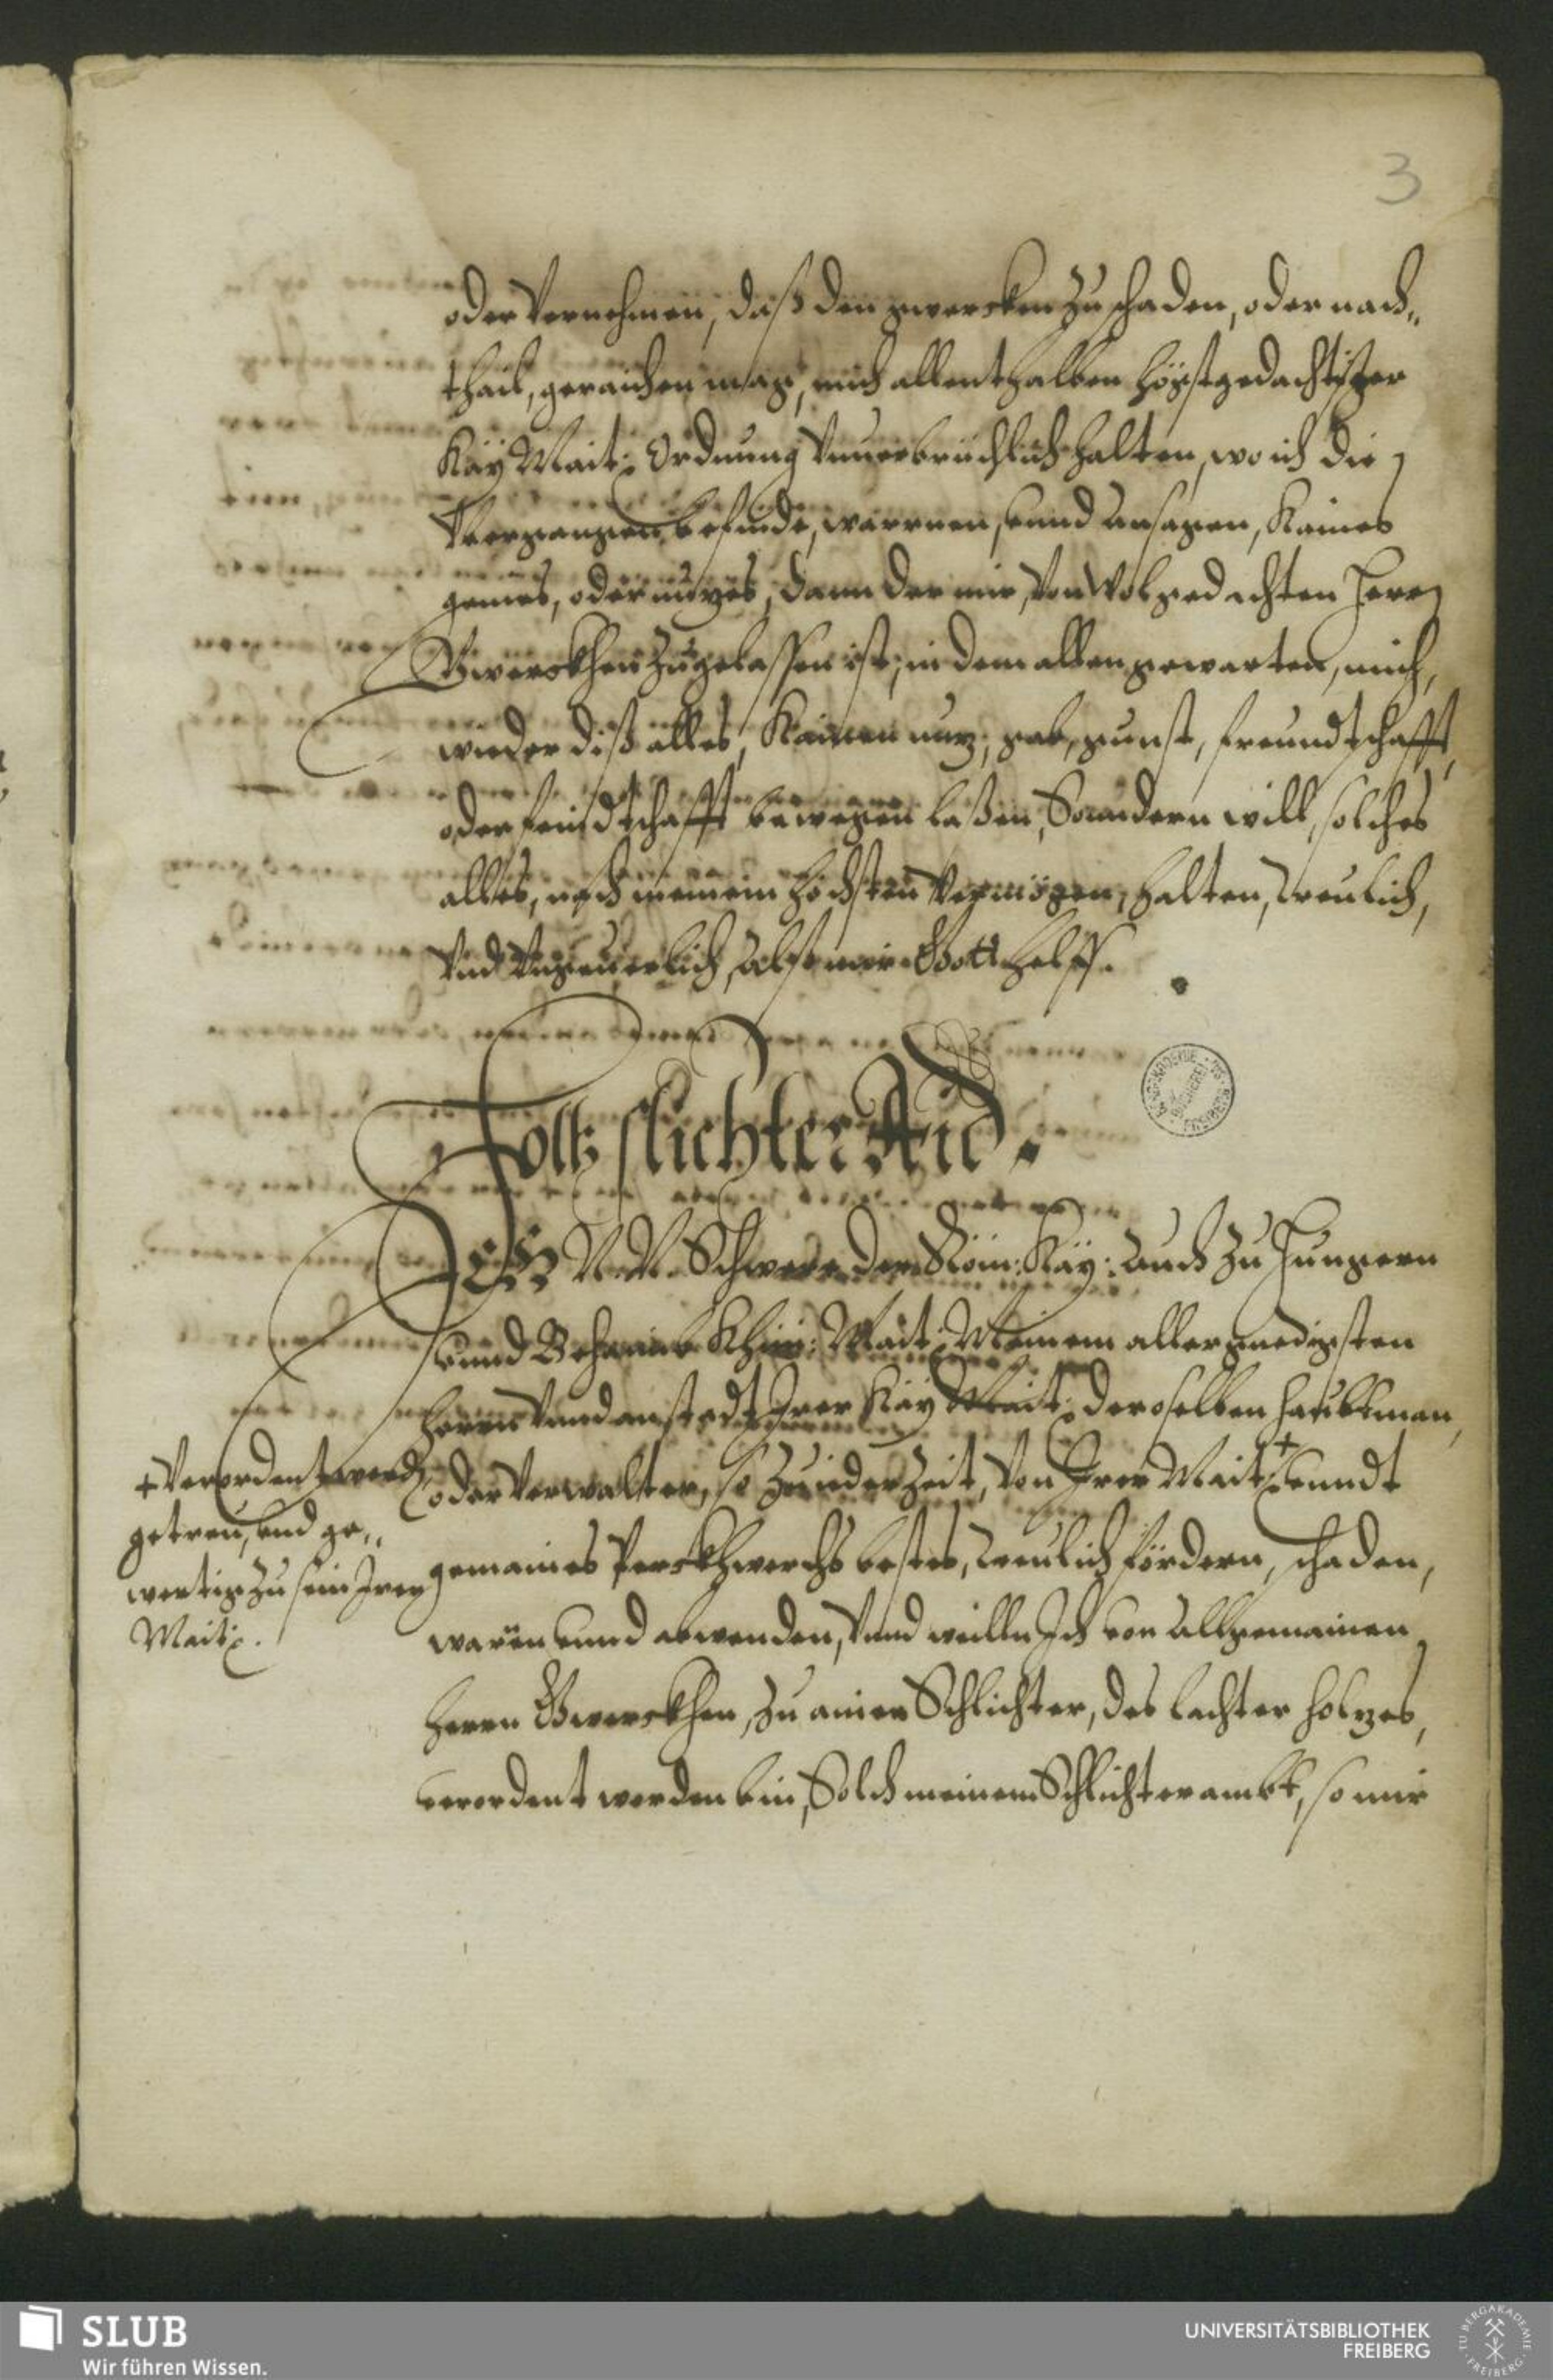 3
oder Vernehmen, daß den gwercken zu schaden, oder nach„
thail, geraichen mag, mich allenthalben höchstgedachtister
Kay Mait: Ordnung Vnuerbrüchlich halten, wo ich die
Vbergangen befinde, warnen, vnnd ansagen, Kaines
genies, oder nuzes, dann der mir, von Wolgedachten Herrn
Gwerckhen zugelassen ist, in dem allen gewarten, mich,
wieder diß alles, Kainen nuz, gab, gunst, freundtschafft,
oder feindtschafft bewegen laßen, Sonndern will, solches
alles, nach meinem höchsten Vermögen, halten, treulich,
Vnd Vngeuerlich, Alß mir Gott helff.
Holtz slichter Aid.
ICH N. N. Schwere der Röm: Kay: auch zu Hungern
vnnd Behaimb Khön: Mait: Meinem allergnedigsten
Herrn Vnnd anstadt Irer Kay Mait: deroselben haubtman,
oder Verwalter, so zu ieder Zeit, von Irer Mait: + vnndt
gemaines Perckhwerchs bestes, treulich fördern, schaden,
waren vnnd abwenden, Vnnd weilln Ich von Allgemainen
Herrn Gwerckhen, zu ainen Schlichter, des lachter holzes,
verordent worden bin, Solch meinem Schlichter ambt, so mir
+ Verordent werdn
getreu, vnd ge„
wertig zu sein Irer
Mait:.
SLUB
Wir führen Wissen.
UNIVERSITÄTSBIBLIOTHEK
FREIBERG
TU BERGAKADEMIE
FREIBERG